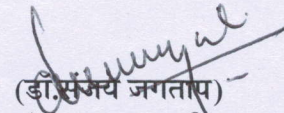 (डॉ.संजय जगताप)